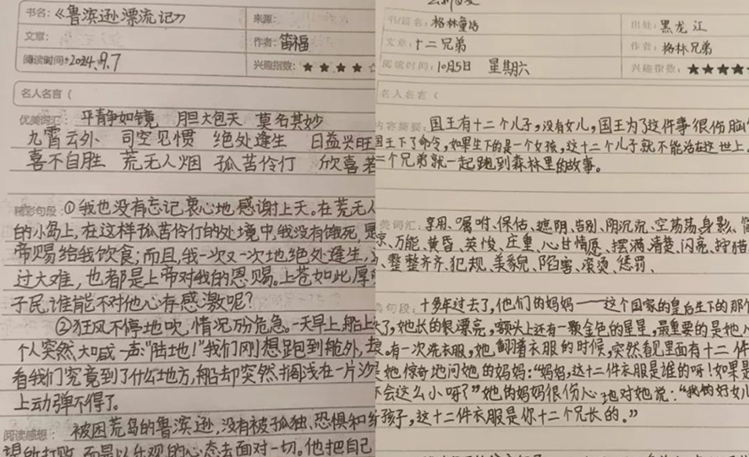 书名:《鲁滨逊漂流记》
来源:
文章:
作者:笛福
阅读时间:2024.9.7
兴趣指数:★★★☆
名人名言(
优美词汇: 平静如镜 胆大包天 莫名其妙
九霄云外 司空见惯 绝处逢生 日益兴旺
喜不自胜 荒无人烟 孤苦伶仃 欣喜若
精彩句段:①我也没有忘记衷心地感谢上天。在荒无人
的小岛上,在这样孤苦伶仃的处境中,我没有饿死,
帝赐给我饮食;而且,我一次又一次地绝处逢生,
过大难,也都是上帝对我的恩赐。上苍如此厚
子民谁能不对他心存感激呢?
②狂风不停地吹,情况万分危急。一天早上,船上
个人突然大喊一声:“陆地!”我们刚想跑到舱外,去
看我们究竟到了什么地方,船却突然搁浅在一片沙
上动弹不得了。
阅读感想: 被困荒岛的鲁滨逊,没有被孤独、恐惧和
望所打败,而是以乐观的心态去面对一切。他把自己
书/篇名:格林童话
出处:黑龙江
文章:十二兄弟
作者:格林兄弟
阅读时间:10月5日 星期六
兴趣指数:★★★★
名人名言(
内容简要: 国王有十二个儿子,没有女儿,国王为了这件事很伤脑
国王下了命令,如果生下的是一个女孩,这十二个儿子就不能活在这世上,
二个兄弟就一起跑到森林里的故事。
美词汇: 享用、嘱咐、保佑、遮阴、告别、阴沉沉、空荡荡、身影、
万能、黄昏、英俊、庄重、心甘情愿、摆满、清楚、闪亮、狞猎
整整齐齐、犯规、美貌、陷害、滚烫、惩罚、
句段: 十多年过去了,他们的妈妈——这个国家的皇后生下的那个
了,她长的很漂亮,额头上还有一颗金色的星星,最重要的是她
有一次洗衣服,她翻着衣服的时候,突然看见里面有十二件
她惊奇地问她的妈妈:“妈妈,这十二件衣服是谁的呀!如果是
不会这么小呀?”她的妈妈很伤心地对她说:“我的好女儿
孩子,这十二件衣服是你十二个兄长的。”